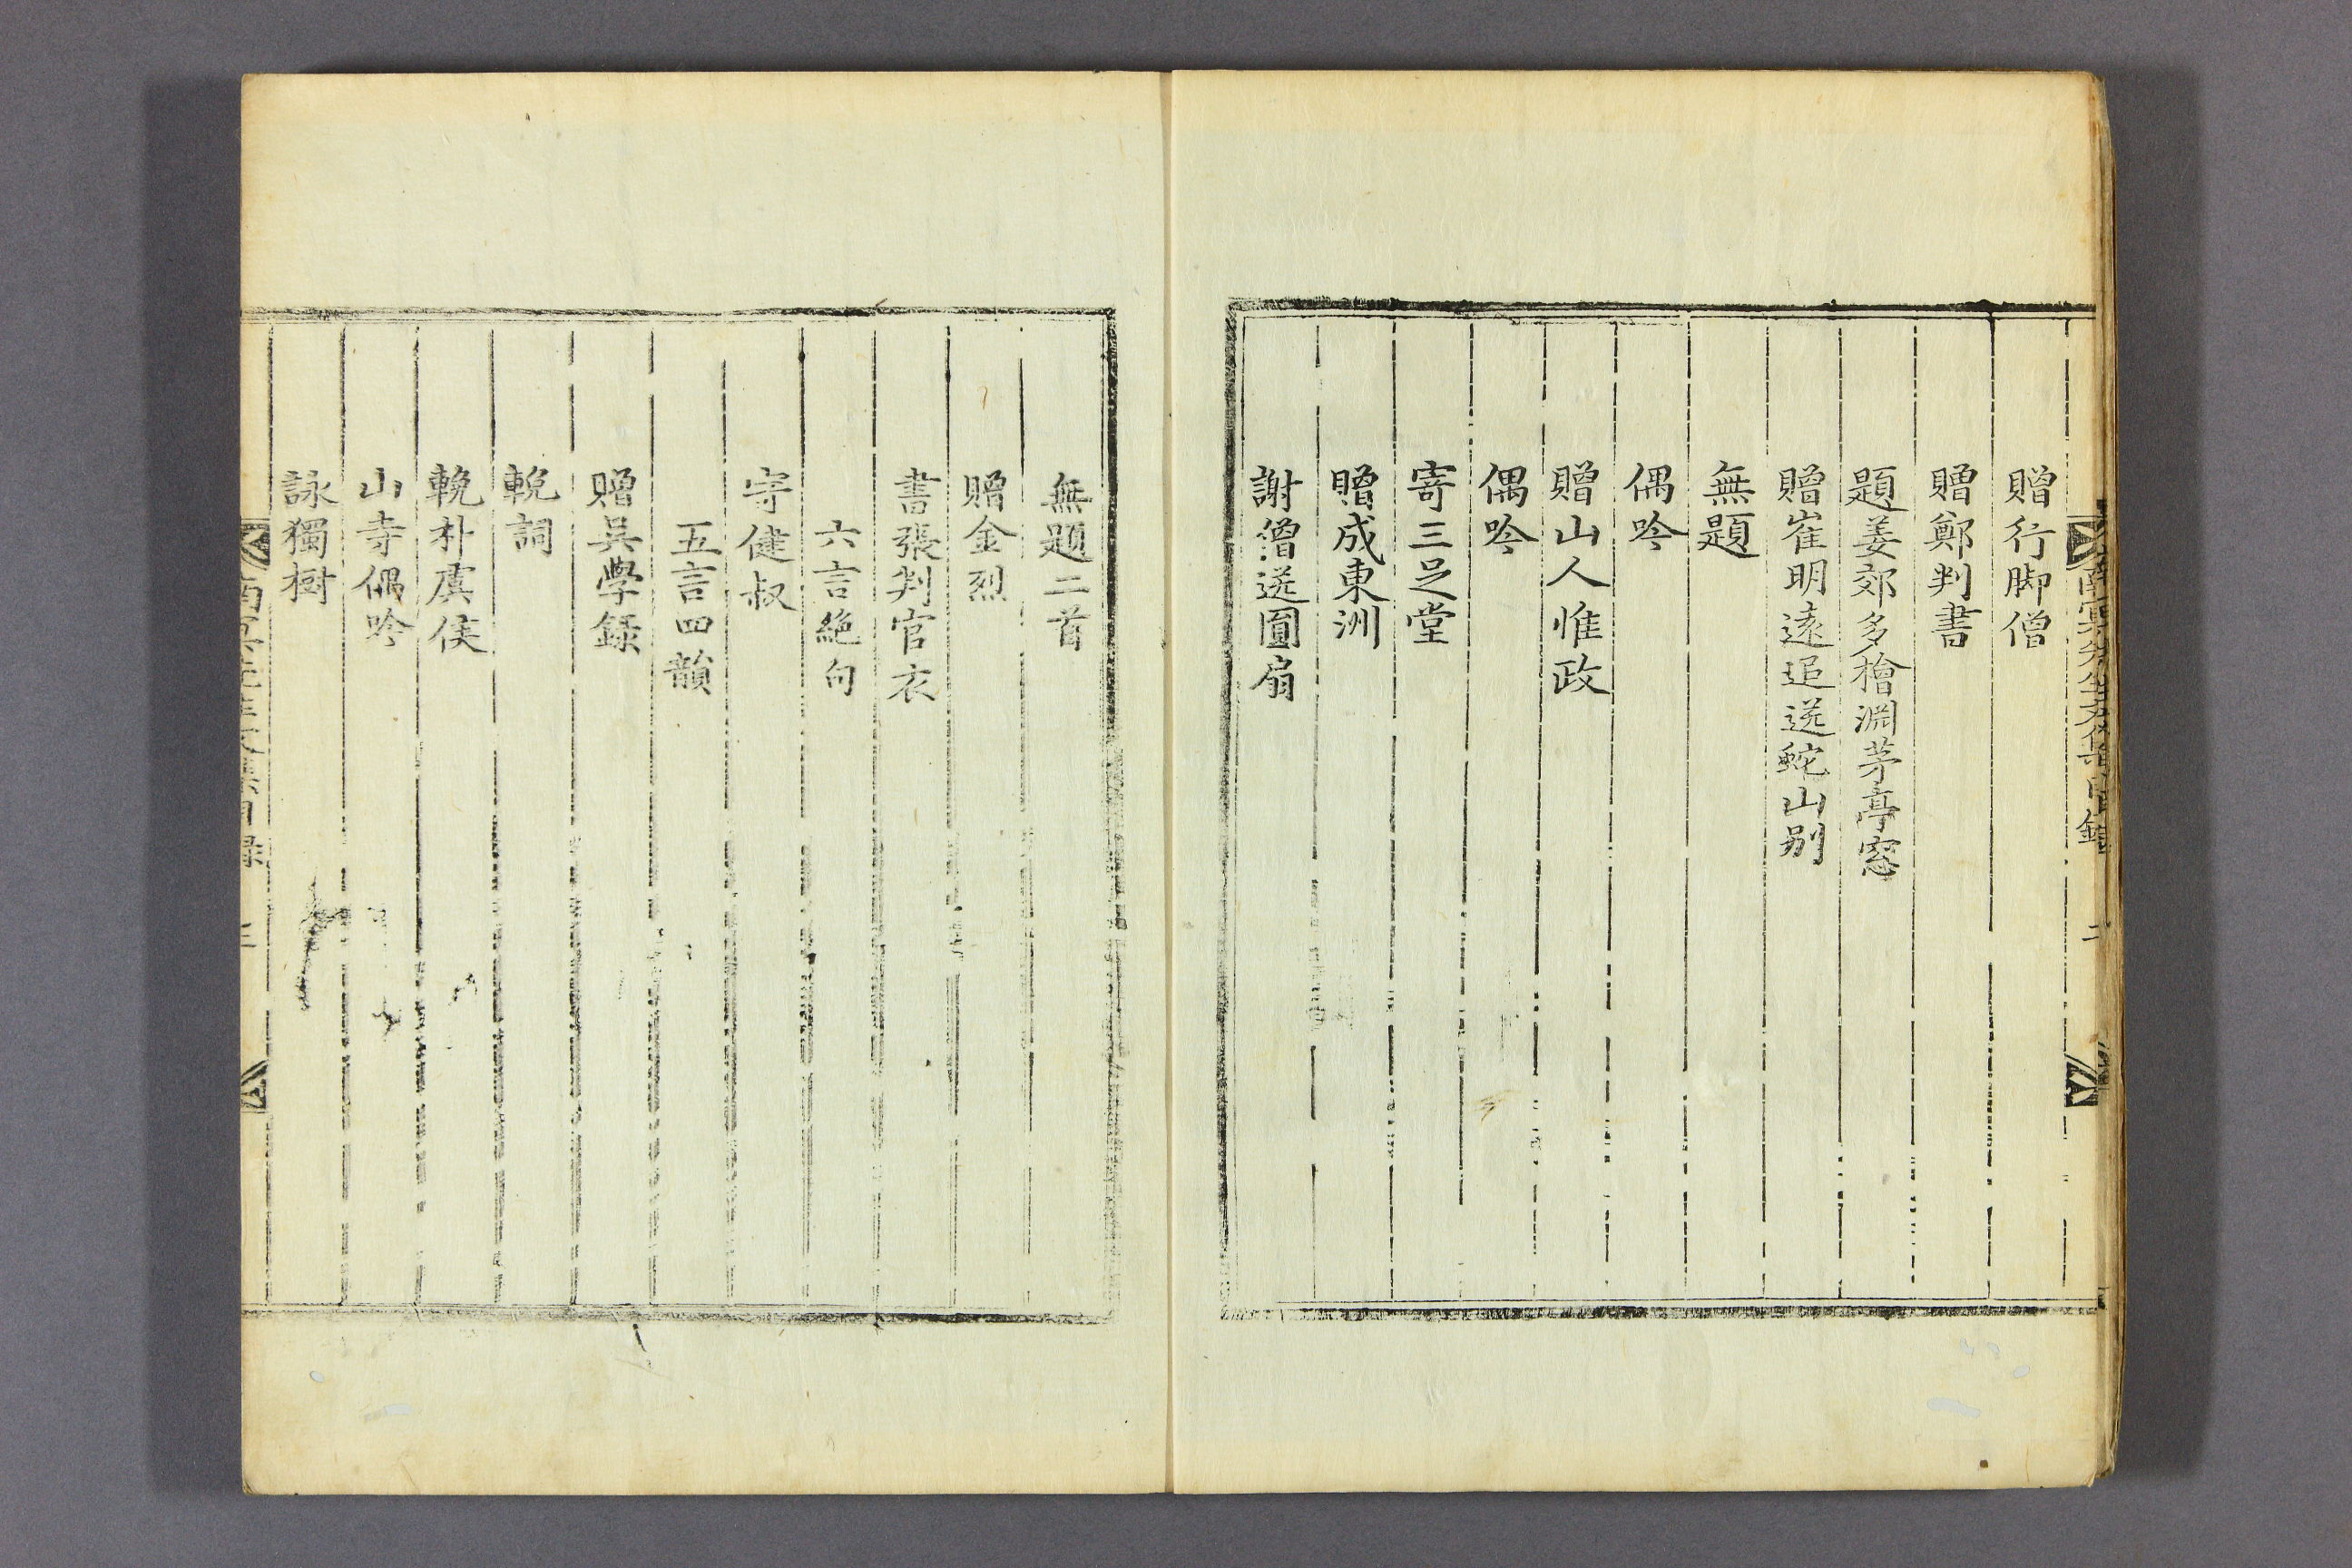 南冥先生文集目錄 二
贈行脚僧
贈鄭判書
題姜郊多檜淵茅亭窓
贈崔明遠追送蛇山别
無題
偶吟
贈山人惟政
偶吟
寄三足堂
贈成東洲
謝僧送圓扇
無題二首
贈金烈
書張判官衣
六言絶句
寄健叔
五言四韻
贈吳學録
輓詞
輓朴虞侯
山寺偶吟
詠獨樹
南冥先生文集目録 三